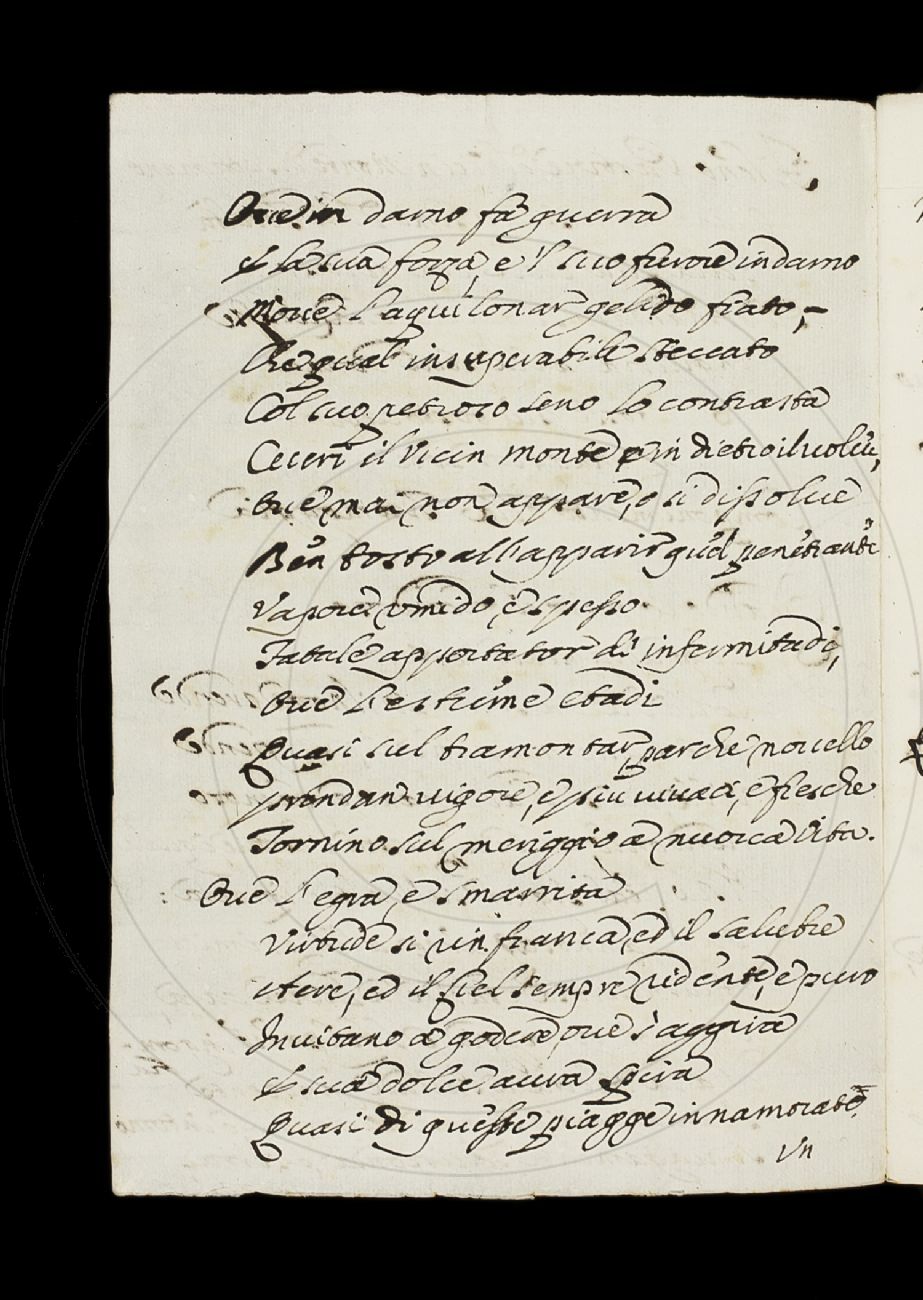 Oue in darno fa guerra
E la sua forza, e 'l suo furore indarno
Moue l'aquilonar gelido fiato,
Che qual insuperabile steccato
Col suo petroso seno lo contrasta
Ceceri il vicin monte e in dietro il volue,
Oue mai non appare, o si dissolue
Ben tosto all'apparir quel penetrante
Vapore vmido e spesso
Fatale apportator di infermitadi,
Oue l'estreme etadi
Quasi sul tramontar, par che nouello
prendan vigore, e piu viuaci, e fresche
Tornino sul meriggio a nuoua vita.
Oue l'egra, e smarrita
Virtude si rinfranca, ed il salubre
Aere, ed il Ciel sempre ridente, e puro
Inuitano a godere, oue s'aggira
E sua dolce aura spira
Quasi di queste piagge innamorato
Vn